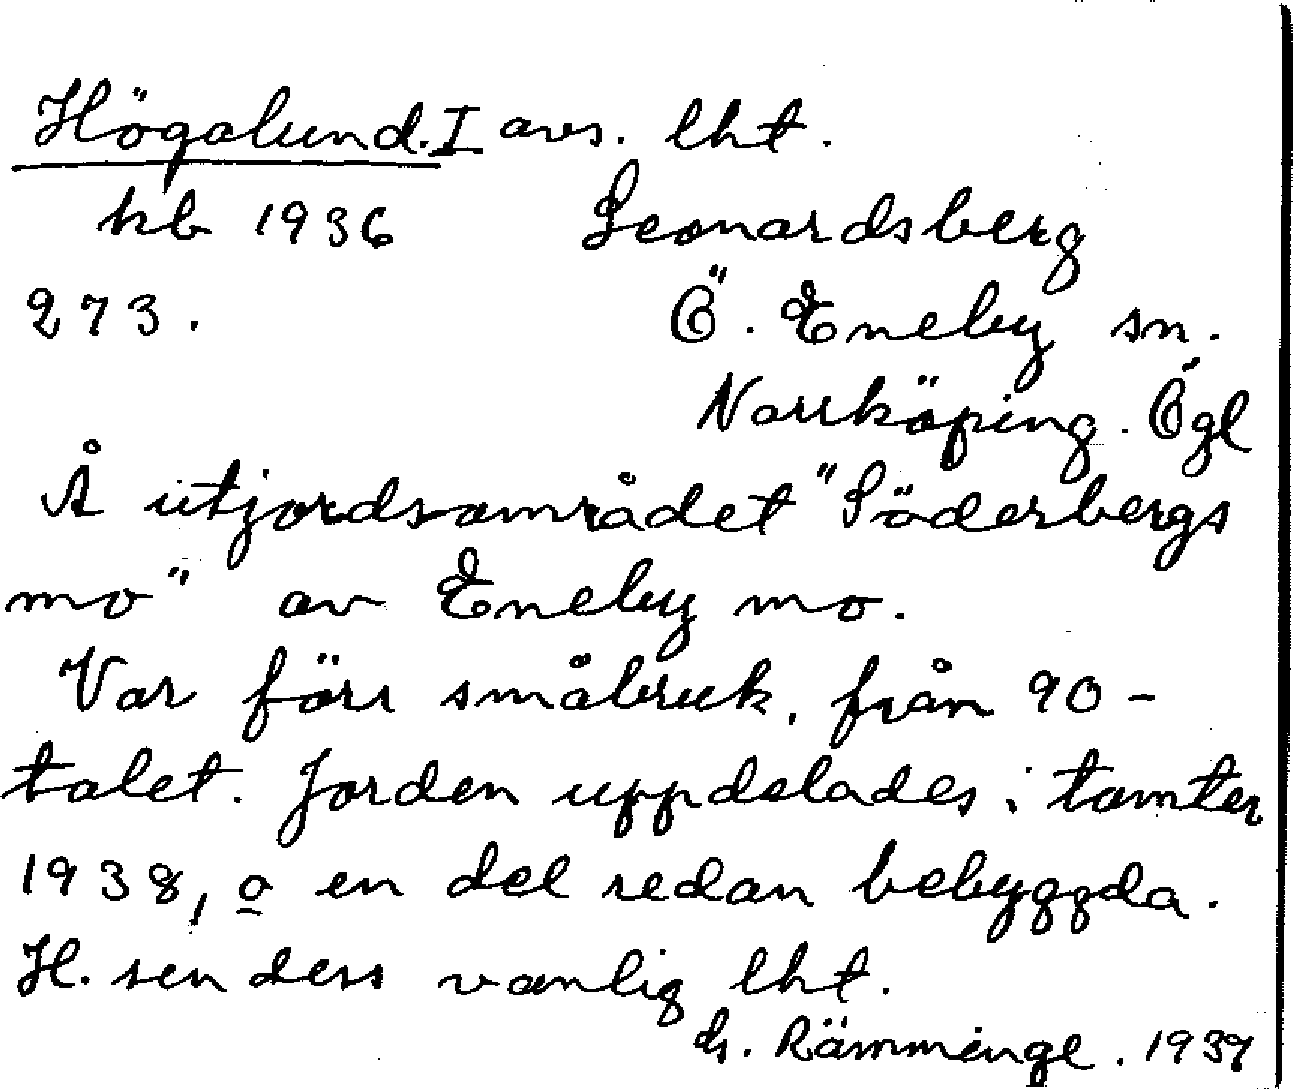 Högalund. I avs. lht.
kb 1936 Leonardsberg
273. Ö. Eneby sn.
Norrköping. Ögl
Å utjordsområdet "Söderbergs
mo" av Eneby mo.
Var förr småbruk, från 90-
talet. Jorden uppdelades i tomter
1938, o en del redan bebyggda.
H. sen dess vanlig lht.
G. Rämminge. 1939